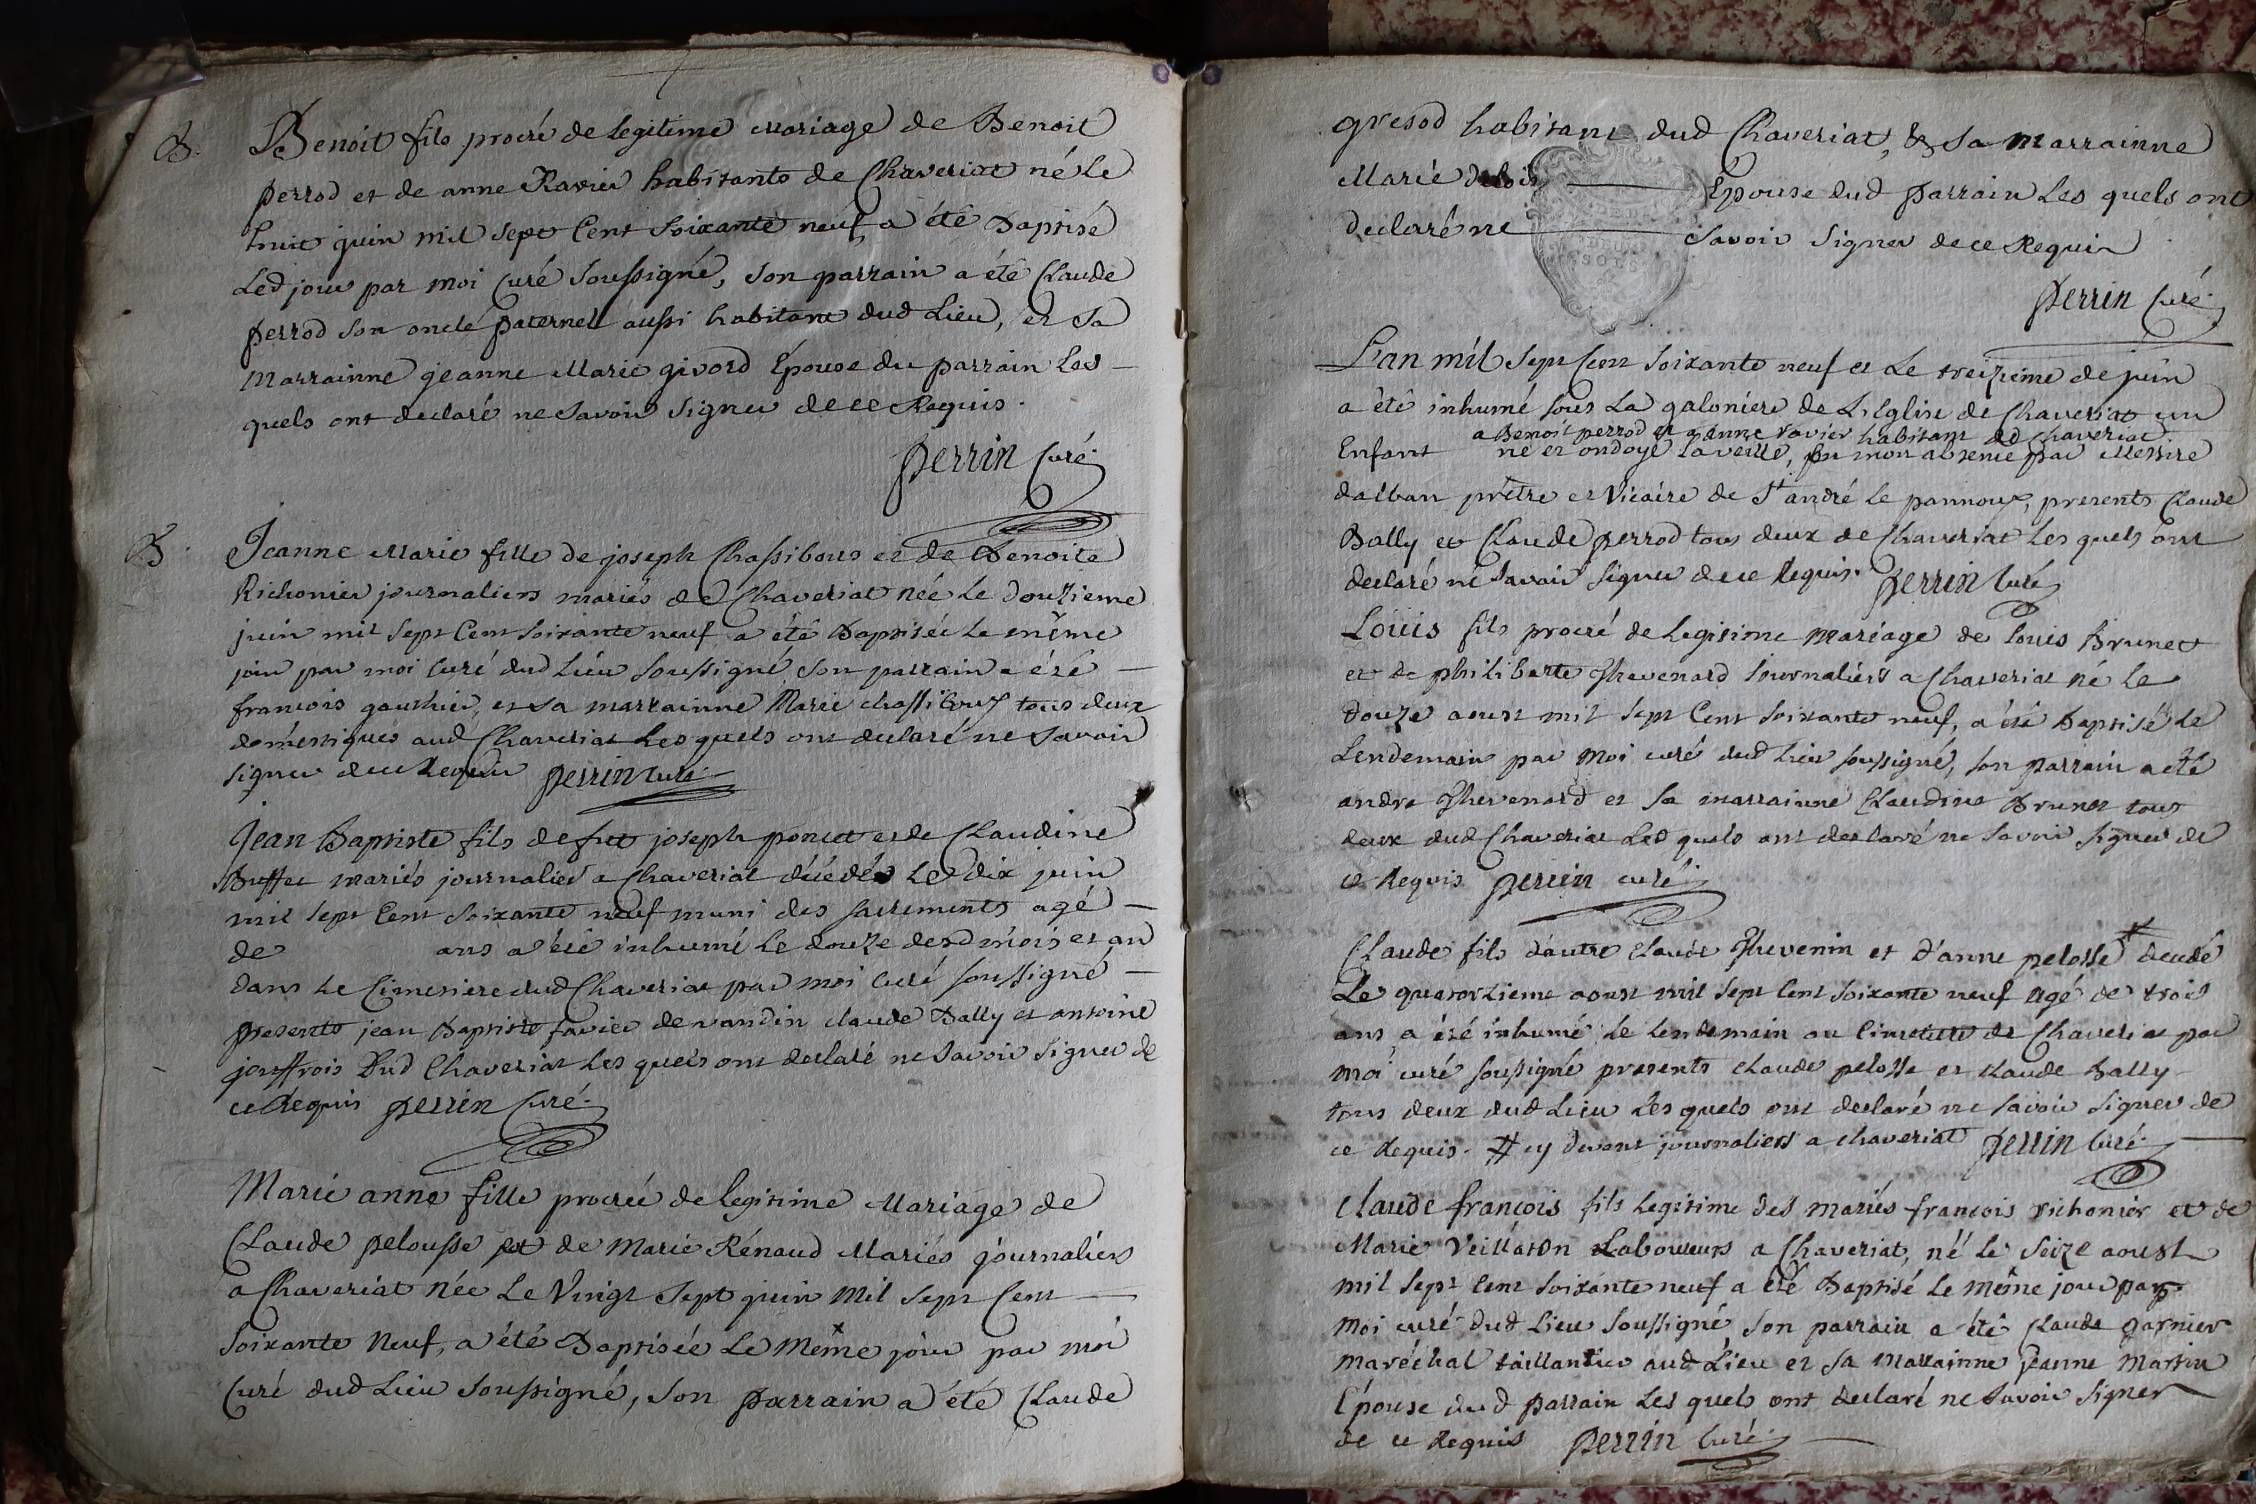 B. Benoit fils procréé de legitime Mariage de Benoit
perrod et de anne Ravier habitants de Chaveriat né le
huit juin mil sept Cent soixante neuf a été Baptisé
led jour par moi Curé soussigné, son parrain a été Claude
perrod son oncle paternel aussi habitant dud Lieu, et sa
Marrainne jeanne Marie givord Epouse du parrain les
quels ont declaré ne savoir signer de ce Requis.
perrin Curé
B. Jeanne Marie fille de joseph Chassibous et de Benoite
Richonier journaliers mariés de Chaveriat née le douzieme
juin mil sept Cent soixante neuf a été Baptisée le même
jour par moi Curé dud lieu soussigné son parrain a été
francois gauthier, et sa marrainne Marie chassibouz tous deux
doméstiques aud Chaveriat les quels ont declaré ne savoir
signer de ce Requis perrin Curé
Jean Baptiste fils de fut joseph poncet et de Claudine
Buffet mariés journalier a Chaveriat décédés le dix juin
mil sept Cent soixante neuf muni des sacrements agé
de ans a été inhumé le douze desd mois et an
dans le Cimetiere dud Chaveriat par moi Curé soussigné
presents jean Baptiste favier de vandin claude Bally et antoine
jouffrois dud Chaveriat les quels ont declaré ne savoir signer de
ce Requis perrin Curé
Marie anne fille procréé de legitime Mariage de
Claude pelousse et de Marie Rénaud Mariés journaliers
a Chaveriat née le Vingt sept juin mil sept Cent
soixante neuf, a été Baptisée le Même jour par moi
Curé dud Lieu soussigné, son parrain a été Claude
habitant dud Chaveriat, & sa marrainne
Marie Epouse dud parrain les quels ont
declaré ne savoir signer de ce Requis
perrin Curé
L'an mil sept Cent soixante neuf et le treizieme de juin
a été inhumé sous la galoniere de L'Eglise de Chaveriat un
a Benoit perrod et a anne ravier habitant dd chaveriat
Enfant né et ondoyé la veille, en mon absence par Messire
dalban prêtre et Vicaire de St andré le pannoux, presents Claude
Bally et Claude perrod tous deux de Chaveriat les quels ont
declaré ne savoir signer de ce Requis. perrin Curé
Louis fils procréé de legitime mariage de Louis Brunet
et de philiberte Thevenard journaliers a Chaveriat né le
douze aoust mil sept Cent soixante neuf, a été Baptisé le
lendemain par moi curé dud lieu soussigné, son parrain a été
andre Thevenard et sa marrainne Claudine Brunet tous
deux dud Chaveriat les quels ont declaré ne savoir signer de
ce Requis perrin curé
Claude fils d'autre Claude Thevenin et d'anne pelosse # decedé
Le quatorzieme aoust mil sept Cent soixante neuf agé de trois
ans a été inhumé le lendemain au Cimetiere de Chaveriat par
moi curé soussigné presents Claude pelosse et claude Bally
tous deux dud Lieu les quels ont declaré ne savoir signer de
ce Requis. # cy devant journaliers a chaveriat perrin Curé
Claude françois fils legitime des mariés francois richonier et de
Marie Veillaton Laboureurs a Chaveriat, né le seize aoust
mil sept Cent soixante neuf a été Baptisé le même jour par
moi curé dud Lieu soussigné son parrain a été Claude garnier
maréchal taillandier aud Lieu et sa marrainne jeanne Martin
Epouse dud parrain les quels ont declaré ne savoir signer
de ce Requis perrin Curé